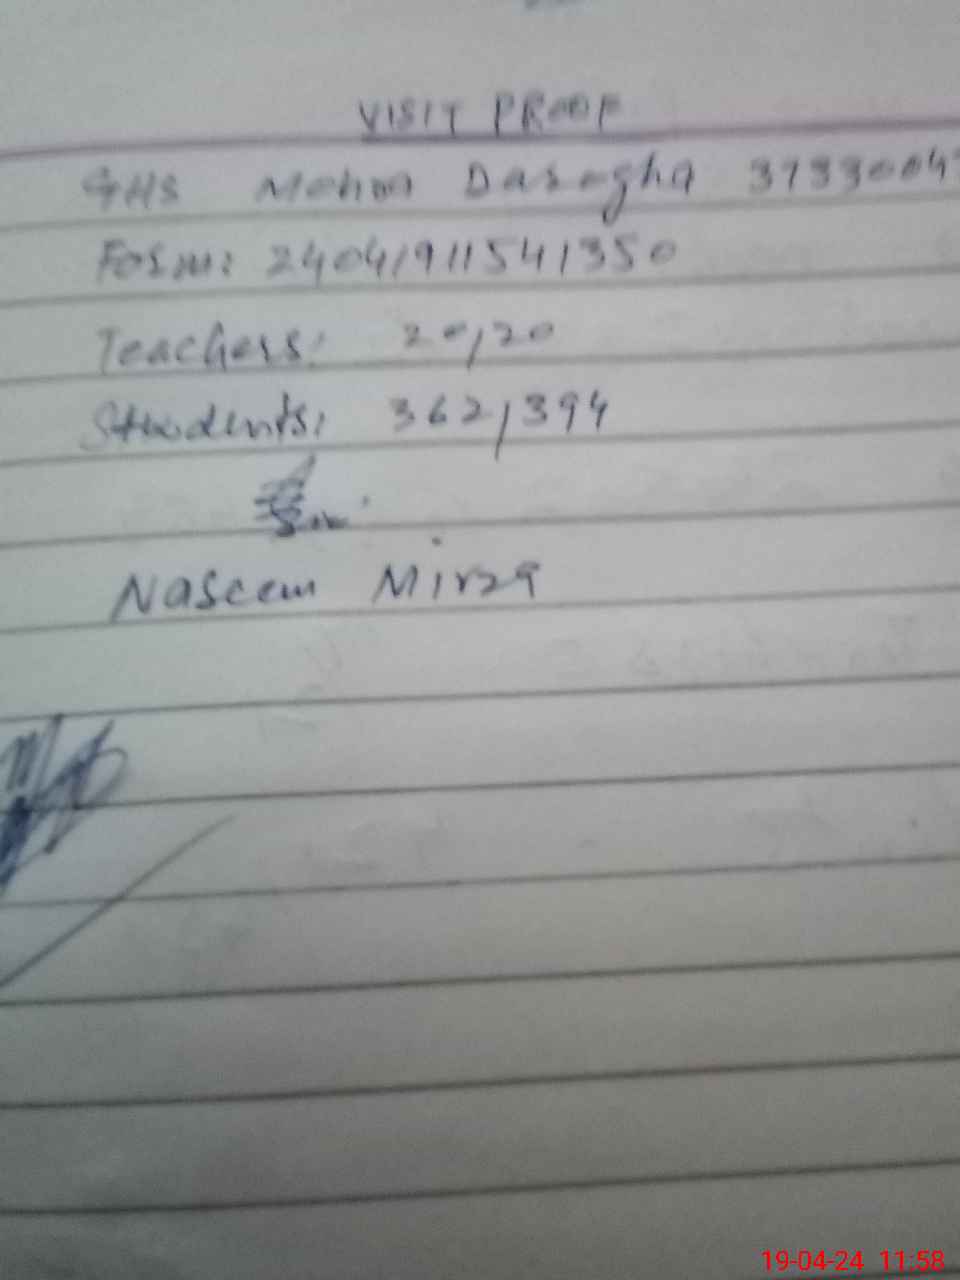 VISIT PROOF
GHS Mohra Darogha 3733004
Form: 24041911541350
Teachers: 20/20
Students: 362/394
Naseem Mirza
19-04-24 11:58